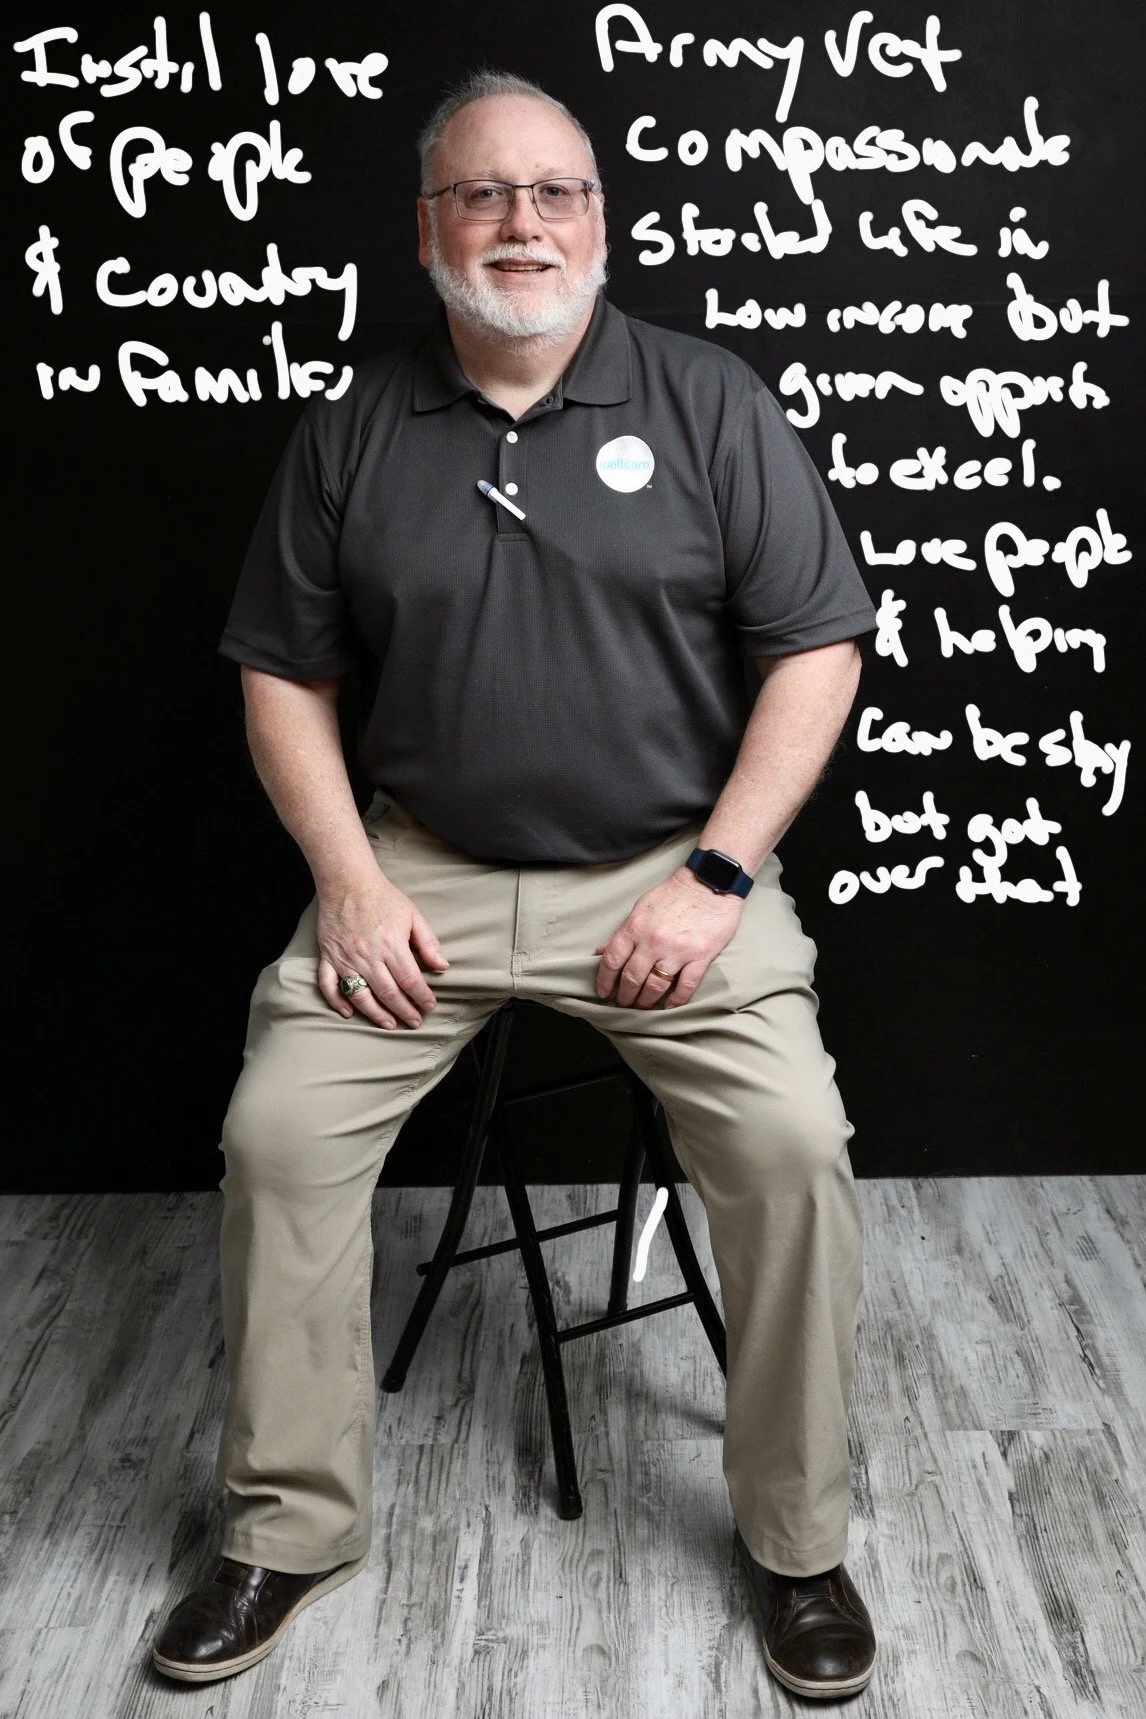 Instil love
of people
& Country
in families
Army Vet
Compassionate
Started life in
Low income but
given opports
to excel.
Love people
& helping
Can be shy
but got
over that
wellcare